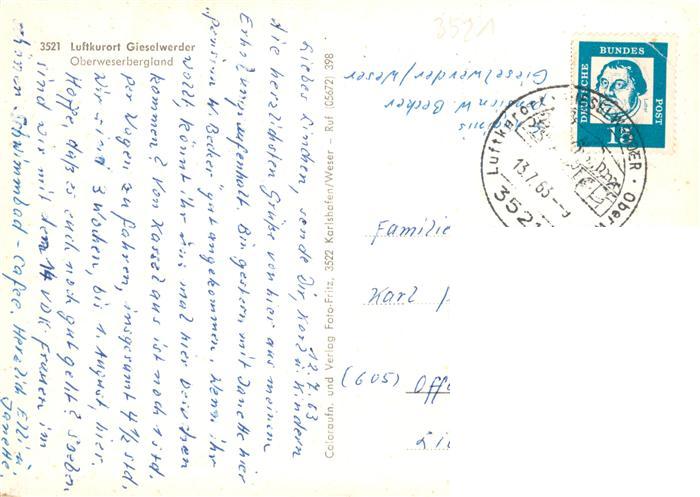 3521 Luftkurort Gieselwerder
Oberweserbergland
12.7.63
Liebes Linchen, sende Dir, Karl u. Kindern
die herzlichsten Grüße von hier aus meinem
Erholungsaufenthalt. Bin gestern mit Janette hier
"Pension W. Becker" gut angekommen. Wenn ihr
wollt, könnt ihr uns mal hier besuchen
kommen? Von Kassel aus ist noch 1 Std.
per Wagen zu fahren, insgesamt 4 1/2 Std.
Wir sind 3 Wochen, bis 1. August, hier.
Hoffe, daß es euch noch gut geht? Soeben
sind wir mit den 14 VDK-Frauen im
Schwimmbad-Cafee. Herzlich Elli u.
Janette.
Coloraufn. und Verlag Foto-Fritz, 3522 Karlshafen/Weser – Ruf (05672) 398
3521
Pension W. Becker
Gieselwerder/Weser
DEUTSCHE BUNDES POST
Luther
15
Luftkurort
13.7.63
3521
Familie
Karl
(605) Off